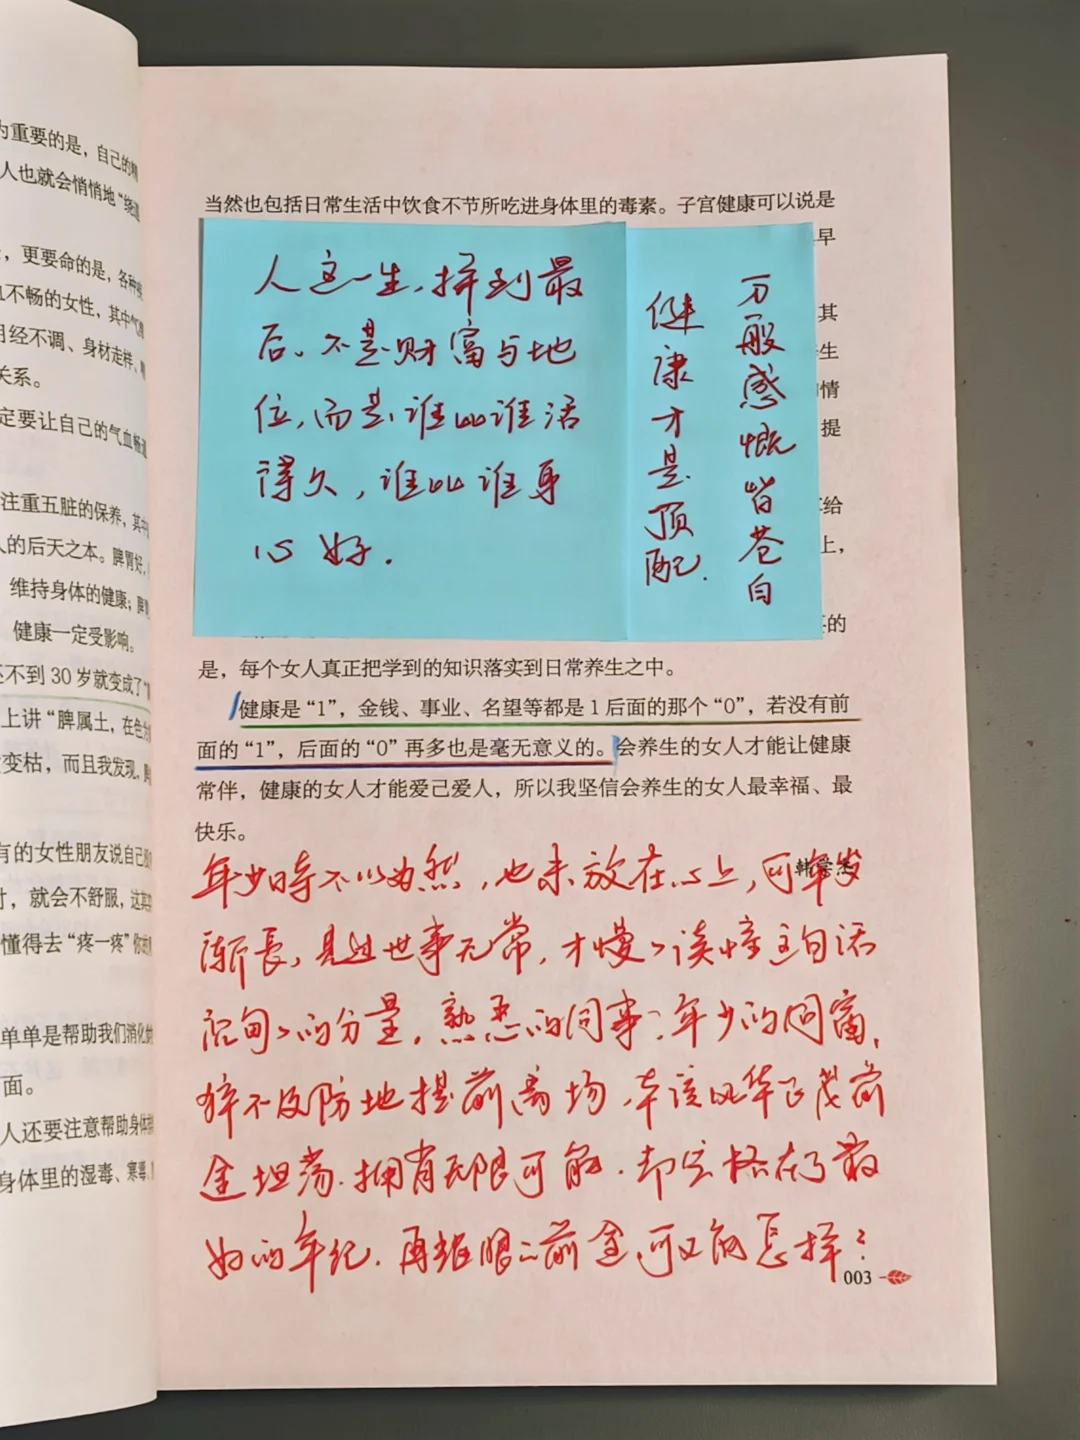 为重要的是，自己的
人也就会悄悄地“绕道
，更要命的是，各种
不畅的女性，其中气
月经不调、身材走样、
关系。
定要让自己的气血畅通
注重五脏的保养，其中
人的后天之本。脾胃好，
维持身体的健康；脾胃
健康一定受影响。
还不到30岁就变成了“
上讲“脾属土，在色为
变枯，而且我发现，
有的女性朋友说自己
时，就会不舒服，这其
懂得去“疼一疼”你
单单是帮助我们消化
面。
人还要注意帮助身体
身体里的湿毒、寒毒、
当然也包括日常生活中饮食不节所吃进身体里的毒素。子宫健康可以说是
早
其
生
情
提
给
上，
的
人这一生，拼到最
后。不是财富与地
位，而是谁比谁活
得久，谁比谁身
心好.
万般感慨皆苍白
健康才是顶配.
是，每个女人真正把学到的知识落实到日常养生之中。
健康是“1”，金钱、事业、名望等都是1后面的那个“0”，若没有前
面的“1”，后面的“0”再多也是毫无意义的。会养生的女人才能让健康
常伴，健康的女人才能爱己爱人，所以我坚信会养生的女人最幸福、最
快乐。
年少时不以为然，也未放在心上，可年岁
渐长，见过世事无常，才慢慢读懂这句话
沉甸甸的分量，熟悉的同事、年少的同窗，
猝不及防地提前离场，本该风华正茂前
途坦荡.拥有无限可能.却定格在了最
好的年纪.再耀眼的前途，可又能怎样？
003